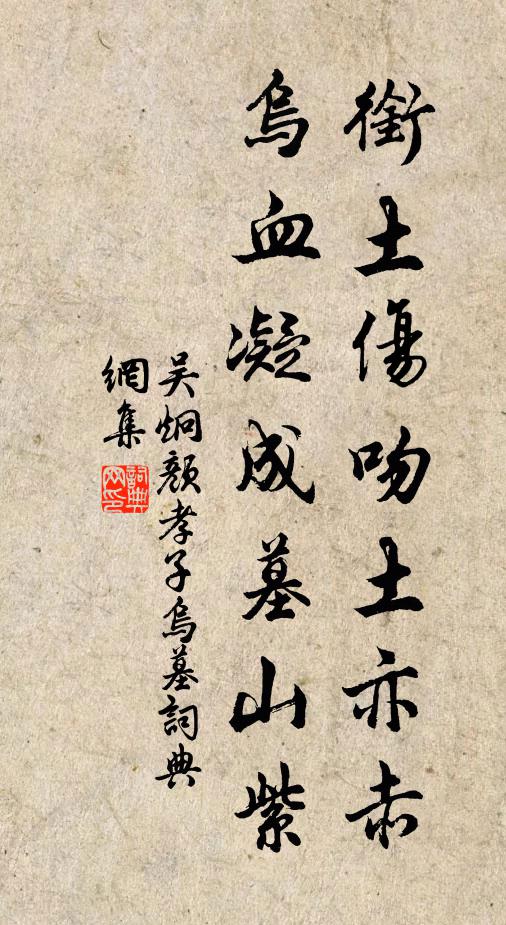 銜土傷吻土亦赤
烏血凝成墓山紫
吴炯顏孝子烏墓詞典
網集
詞典
网印